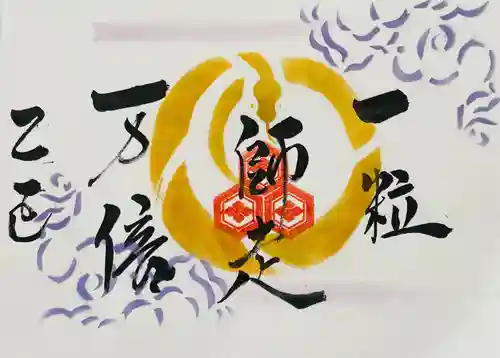 一粒
師走
万倍
乙巳